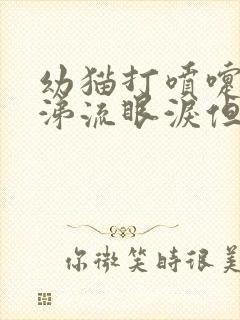 幼猫打噴嚏
涕流眼淚但
你微笑時很美